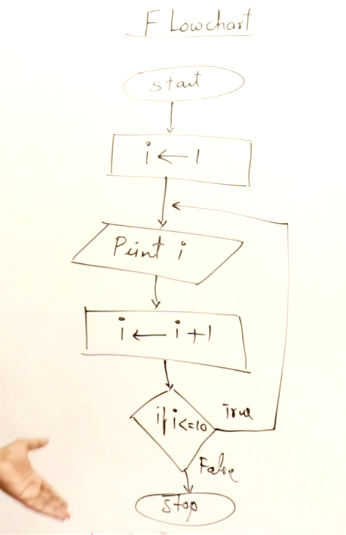 Flowchart
start
i ← 1
Print i
i ← i + 1
if i <= 10
True
False
stop